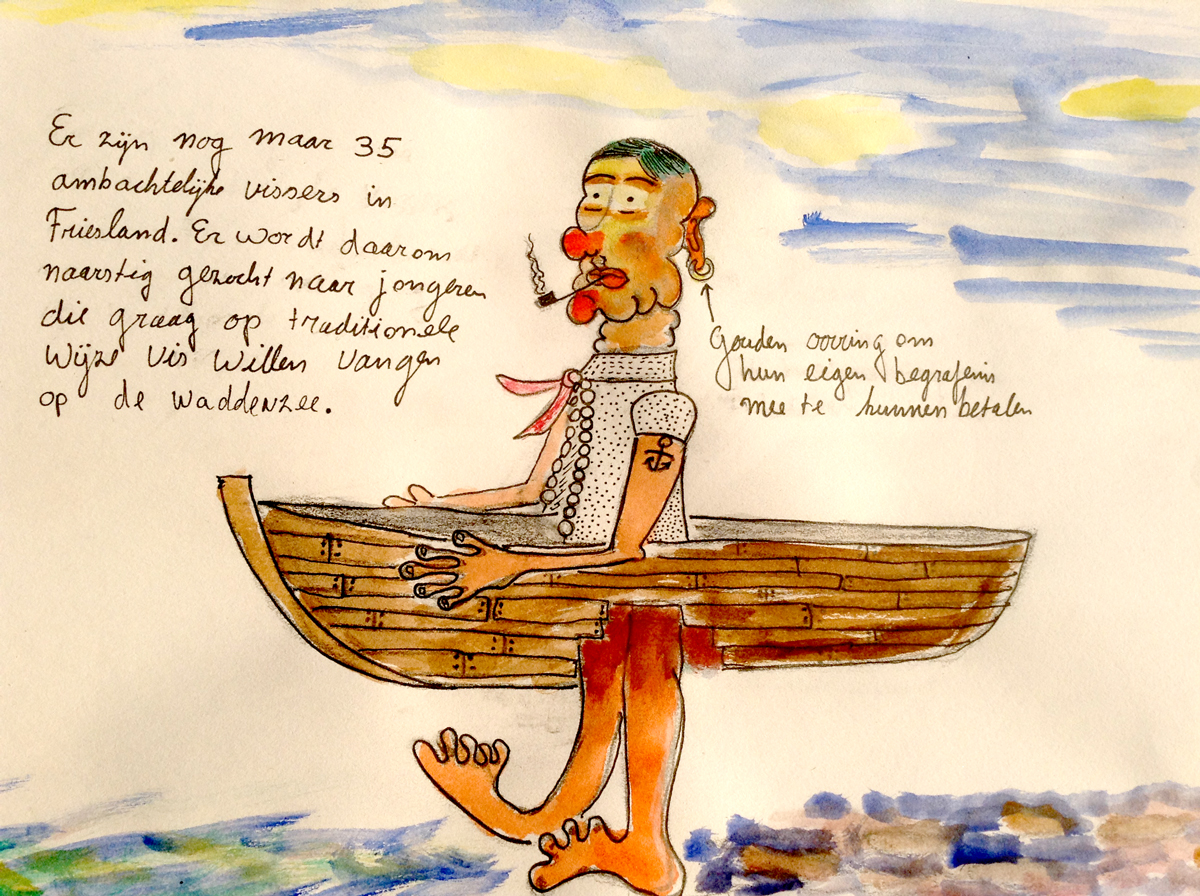 Er zijn nog maar 35
ambachtelijke vissers in
Friesland. Er wordt daarom
naarstig gezocht naar jongeren
die graag op traditionele
wijze vis willen vangen
op de waddenzee.
gouden oorring om
hun eigen begrafenis
mee te kunnen betalen